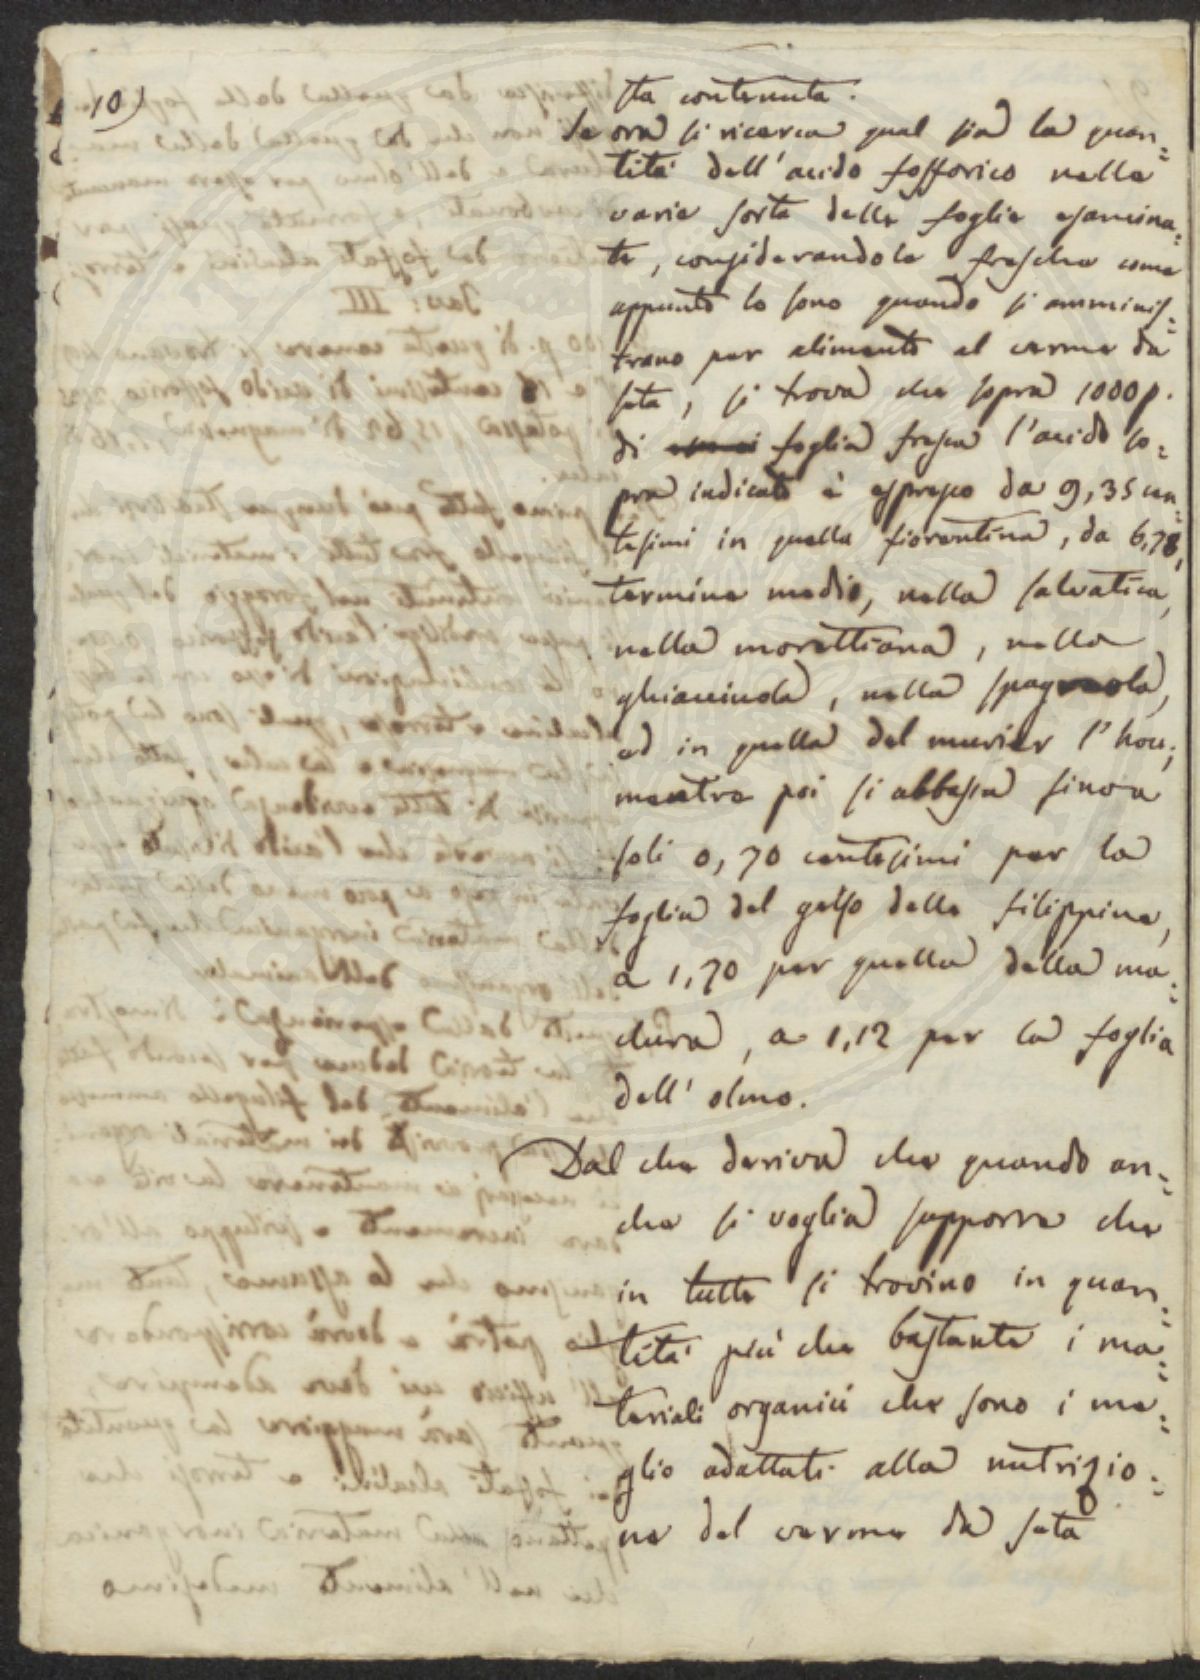 10)
sta contenuta.
Se ora si ricerca qual sia la quan=
tità dell'acido fosforico nelle
varie sorte delle foglie esamina=
te, considerandole fresche come
appunto lo sono quando si amminis=
trano per alimento al verme da
seta, si trova che sopra 1000 p.
di foglia fresca l'acido so=
pra indicato è espresso da 9,35 cen=
tesimi in quella fiorentina, da 6,78,
termine medio, nella salvatica,
nella morettiana, nella
ghiacciuola, nella spagnola,
ed in quella del murier l'hou;
mentre poi si abbassa sino a
soli 0,70 centesimi per la
foglia del gelso delle filippine,
a 1,70 per quella della ma=
clura, a 1,12 per la foglia
dell'olmo.
Dal che deriva che quando an=
che si voglia supporre che
in tutte si trovino in quan=
tità più che bastante i ma=
teriali organici che sono i me=
glio adattati alla nutrizio=
ne del verme da seta